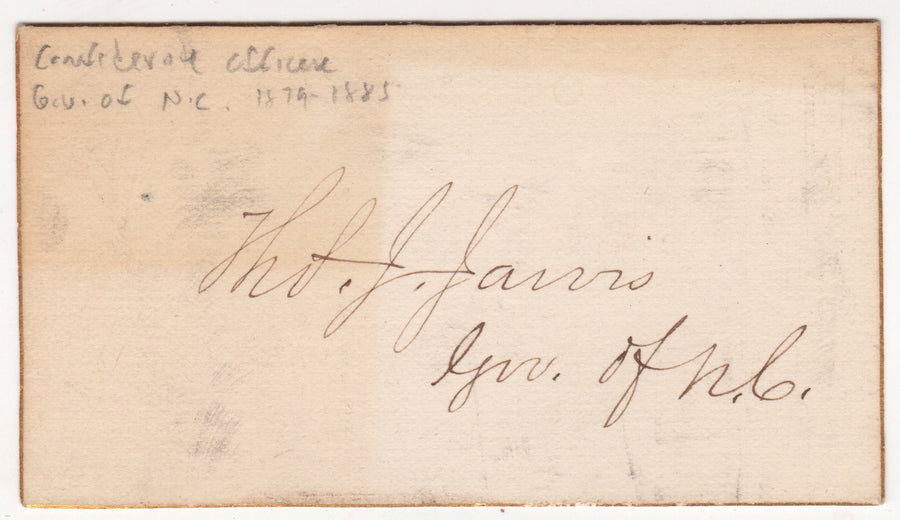 Confederate officer
Gov. of N.C. 1879-1885
Thos. J. Jarvis
Gov. of N.C.